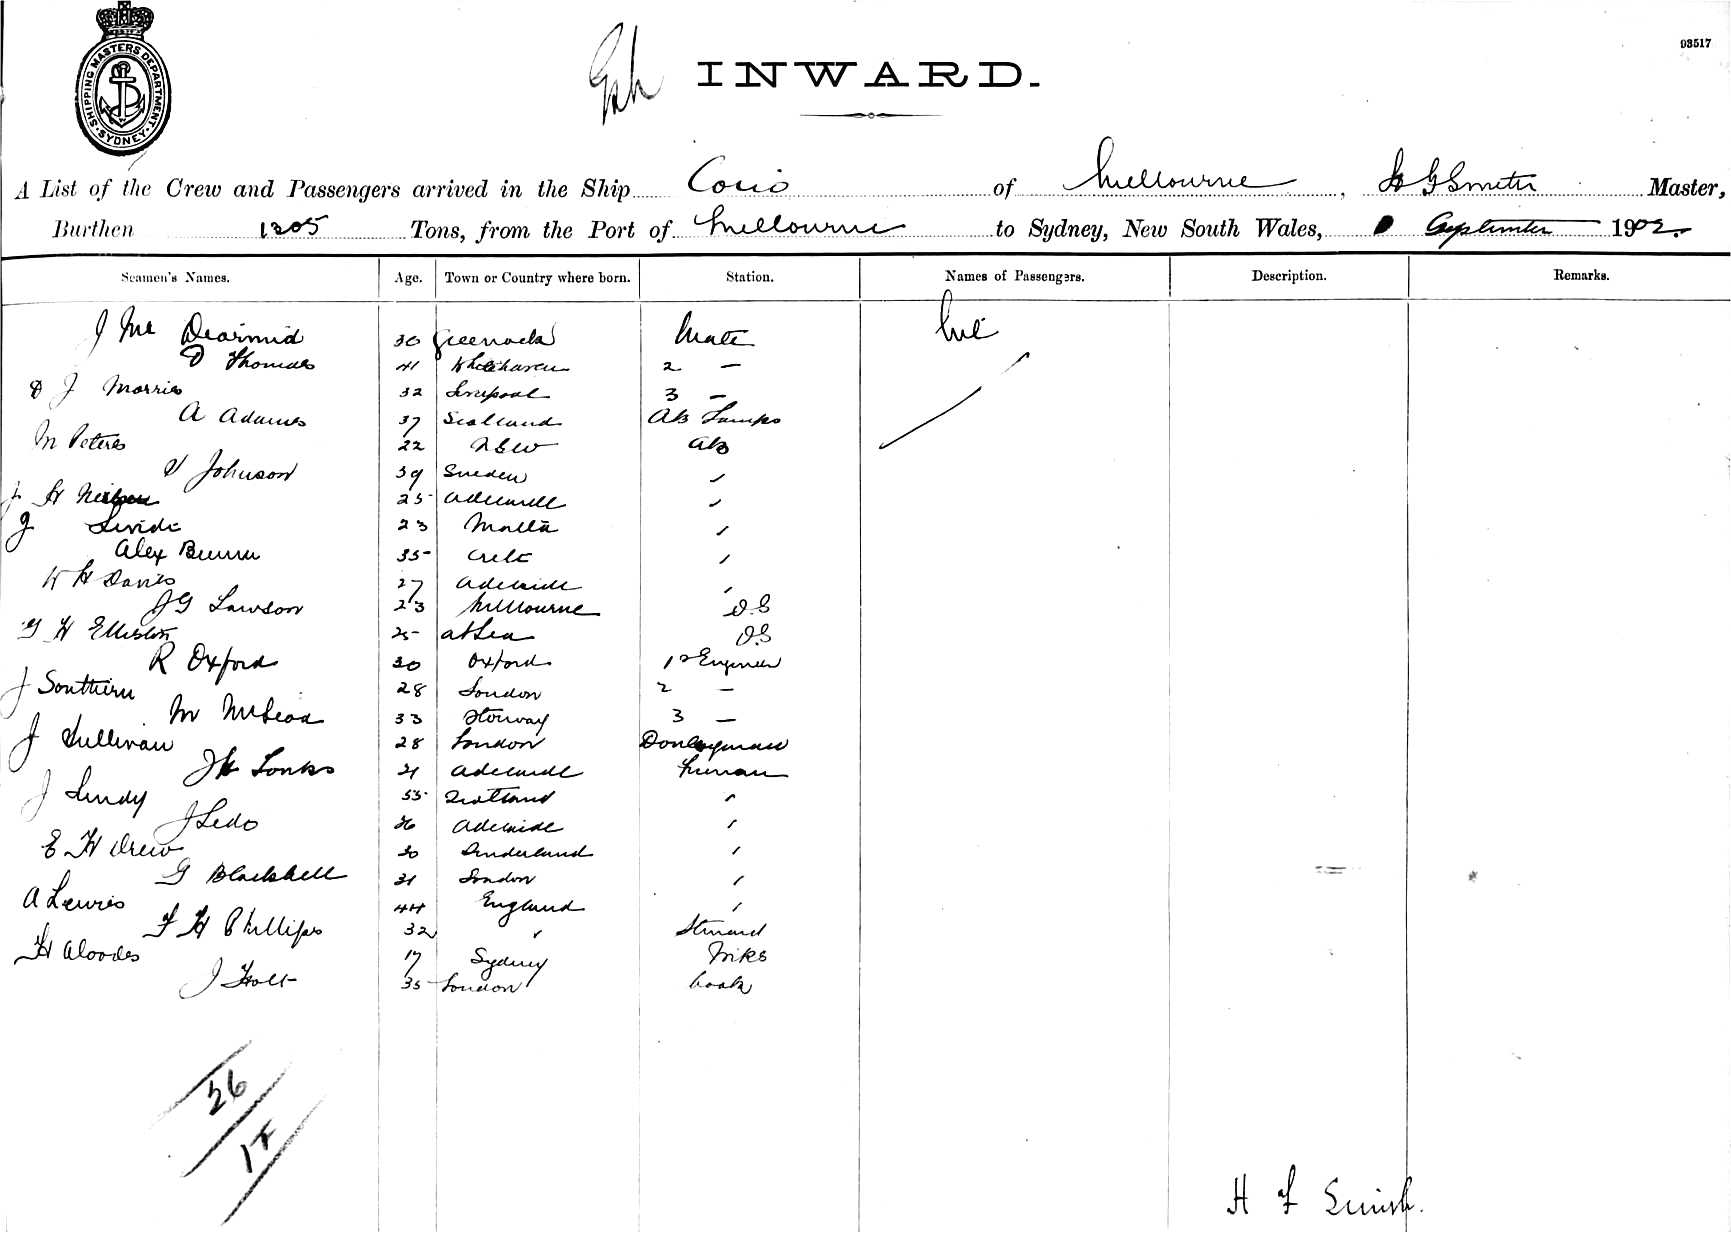 SHIPPING MASTERS DEPARTMENT
SYDNEY
93517
INWARD.
A List of the Crew and Passengers arrived in the Ship Corio of Melbourne, Smith Master,
Burthen 1305 Tons, from the Port of Melbourne to Sydney, New South Wales, September 1902.
Seamen's Names. Age. Town or Country where born. Station. Names of Passengers. Description. Remarks.
J Mc Dearmid 30 Greenock Mate Nil
D Thomas 41 Whitehaven 2 —
D J Morris 32 Liverpool 3 —
A Adams 37 Scotland AB Lamps
M Peters 22 NSW AB
Johnson 39 Sweden "
H 25 Adelaide "
J 23 Malta "
Alex 35 Crete "
W H Davies 27 Adelaide "
J G Lawson 23 Melbourne O.S
H Elliston 25 at Sea O.S
R Oxford 30 Oxford 1st Engineer
J Southern 28 London 2 —
M McLeod 33 Storway 3 —
J Sullivan 28 London Donkeyman
J H Lonks 21 Adelaide Fireman
J 35 Scotland "
J Ledo 26 Adelaide "
E H Drew 30 Sunderland "
G Blackhall 31 London "
A Lewis 44 England "
F H Phillips 32 " Steward
H Woodes 17 Sydney
J Holt 35 London Cook
26